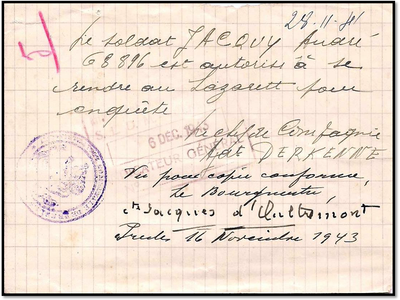 28-11-41
Le soldat JACQUY André
68896 est autorisé à se
rendre au Lazarett pour
enquête
Le chef de Compagnie
Adt DERKENNE
6 DEC. 1945
TEUR GENERAL
Vu pour copie conforme,
le Bourgmestre,
Jacques d'Oultremont
16 Novembre 1943